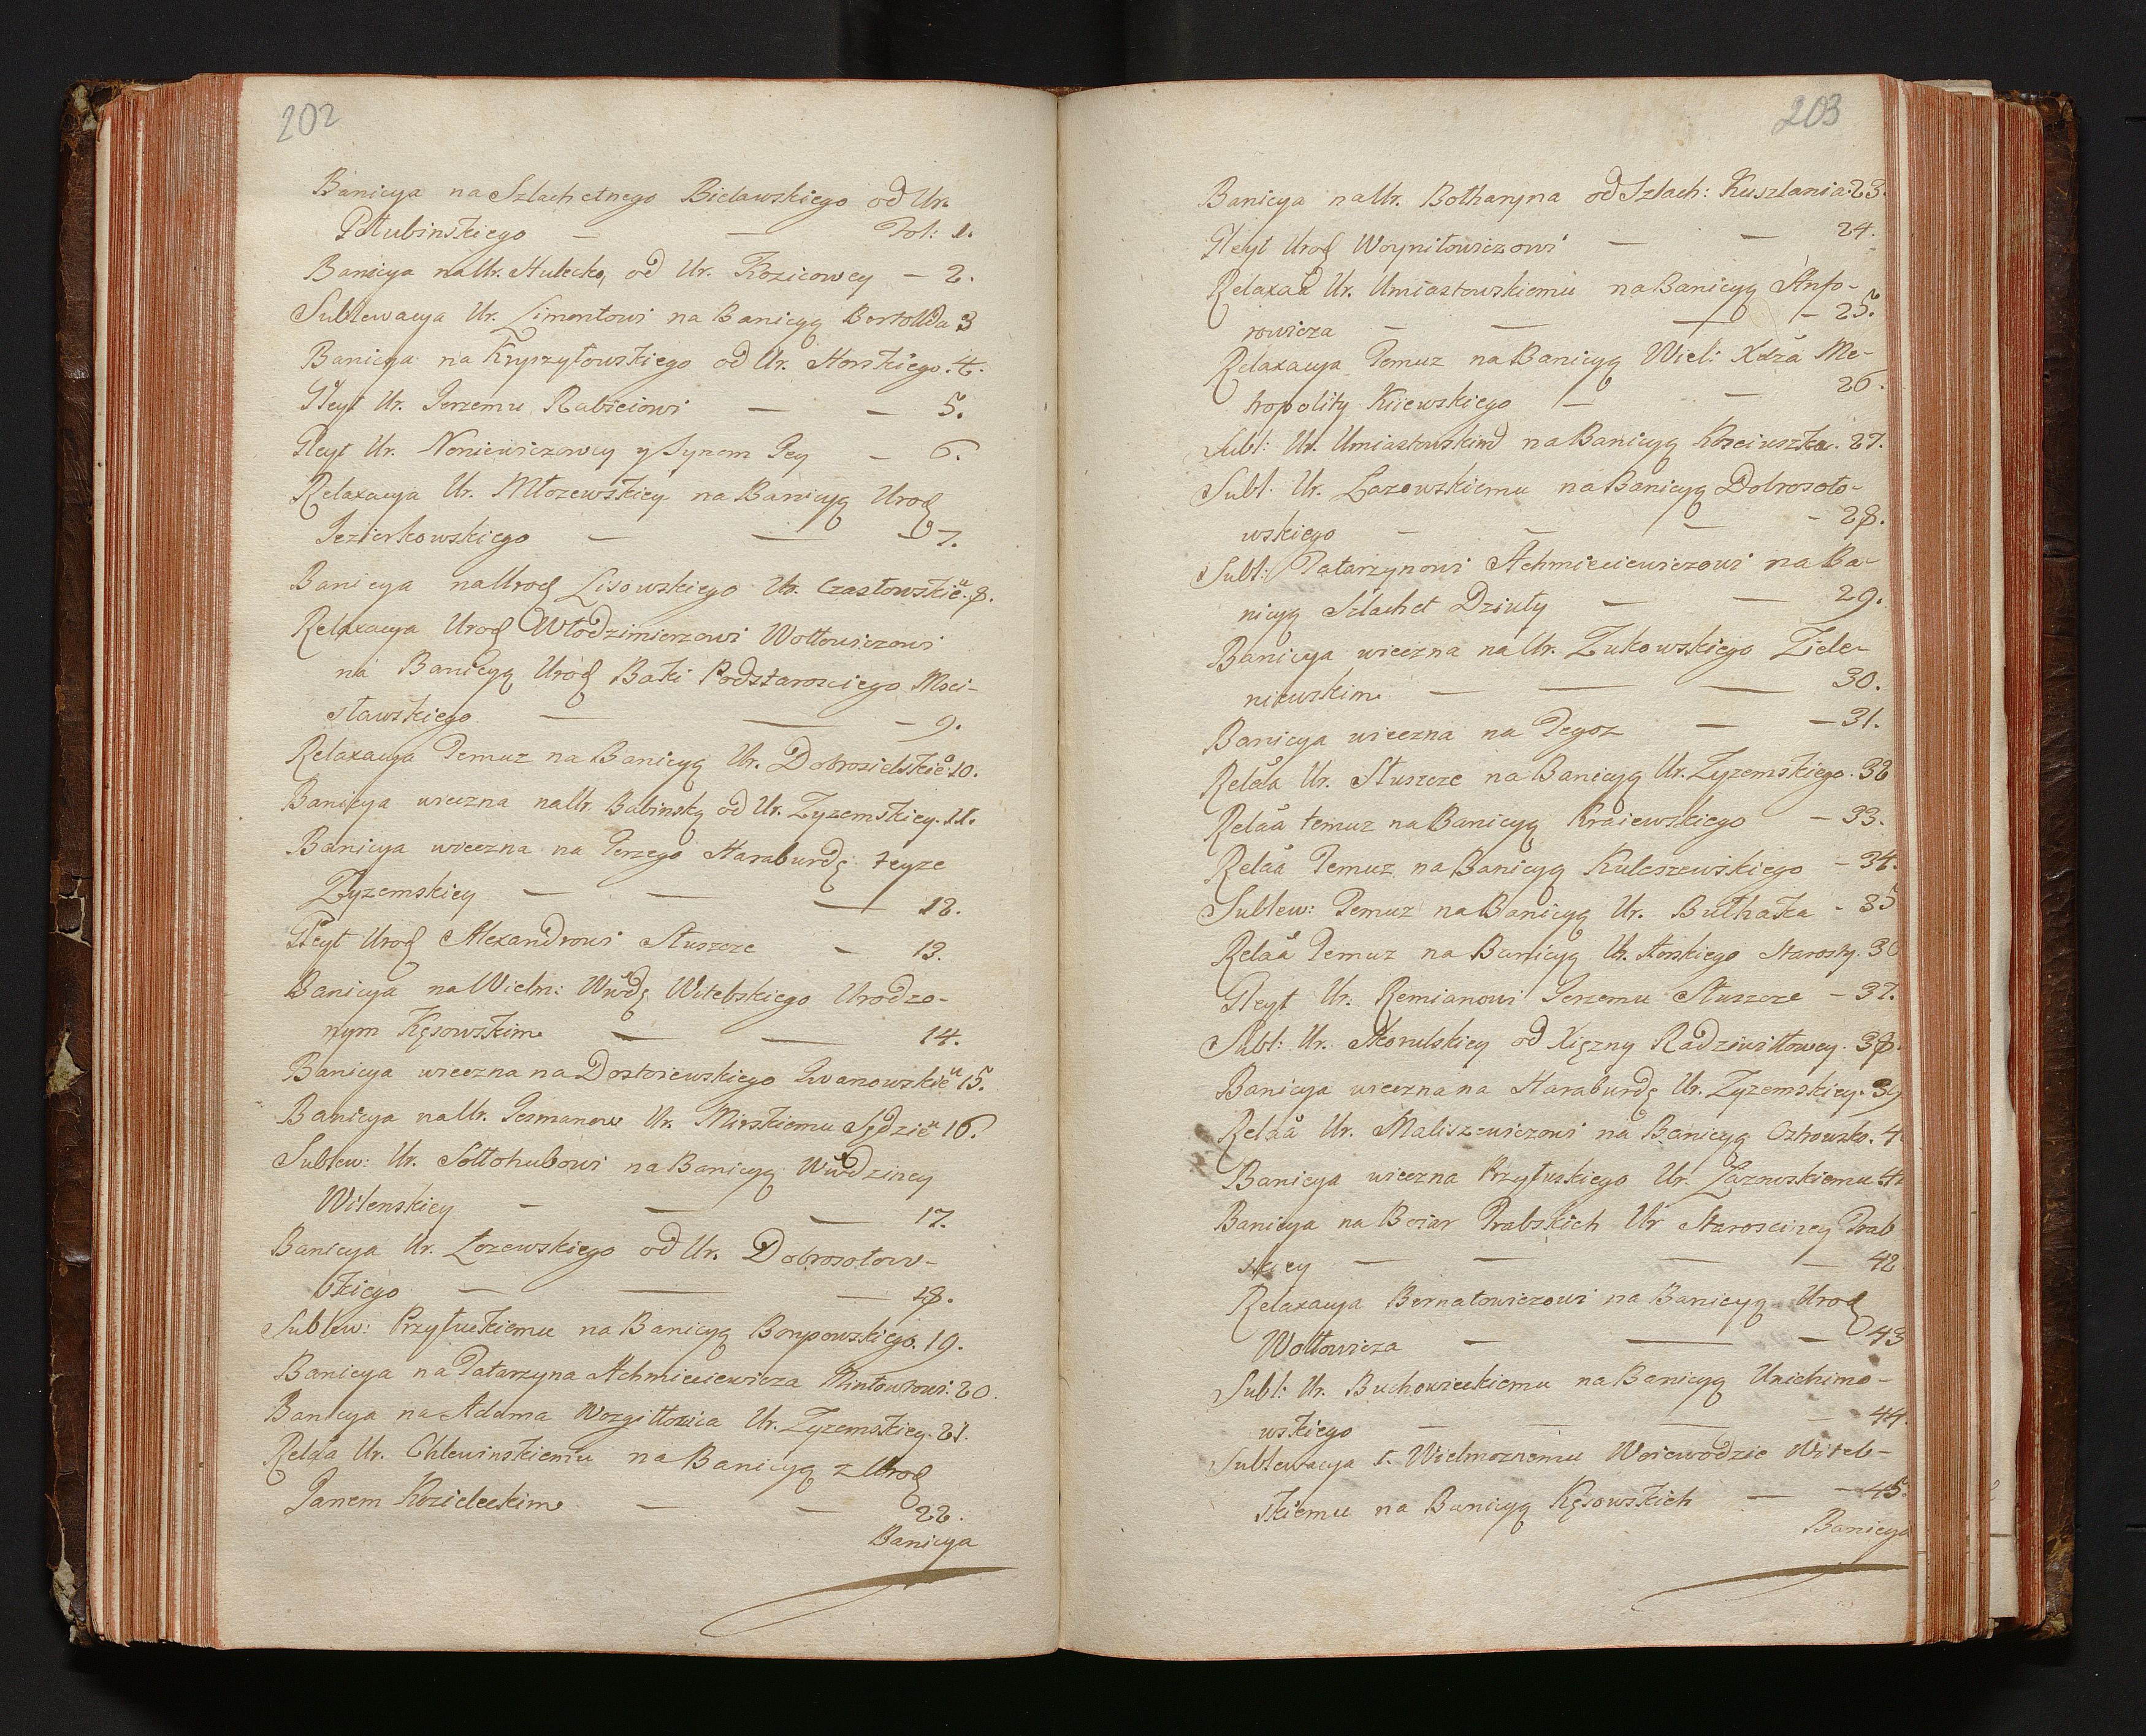 202
Banicya na Szlachetnego Bielawskiego od Ur.
Połubinskiego — — Fol: 1.
Banicya na Ur. Hulecką od Ur. Kozicowey — 2.
Sublewacya Ur. Limontowi na Banicyą Bertolda 3
Banicya na Kryszyłowskiego od Ur. Horskiego. 4.
Gleyt Ur. Jerzemu Rabieiowi — — 5.
Gleyt Ur. Noniewiczowey y Synom Jey — 6.
Relaxacya Ur. Młozewskiey na Banicyą Urod
Jezierkowskiego — — — 7.
Banicya na Urod Lisowskiego Ur. Czasłowskieu. 8.
Relaxacya Urod Włodzimierzowi Wołłowiczowi
na Banicyą Urod Baki Podstarosciego Msci-
sławskiego — — — 9.
Relaxacya Temuz na Banicyą Ur. Dobrosielskiego 10.
Banicya wieczna na Ur. Babinską od Ur. Zyzemskiey. 11.
Banicya wieczna na Jerzego Haraburdę teyze
Zyzemskiey — — — 12.
Gleyt Urod Alexandrowi Słuszcze — 13.
Banicya na Wielm: Wwdę Witebskiego Urodzo-
nym Kęsowskim — — 14.
Banicya wieczna na Dostoiewskiego Iwanowskieu 15.
Banicya na Ur. Jesmanow Ur. Mirskiemu Sędzieu 16.
Sublew: Ur. Sołłohubowi na Banicyą Wwdziney
Wilenskiey — — — 17.
Banicya Ur. Łozewskiego od Ur. Dobrosołow-
skiego — — — 18.
Sublew: Przyłuskiemu na Banicyą Bonpowskiego. 19.
Banicya na Tatarzyna Achmieciewicza Mintowtowi. 20.
Banicya na Adama Wozgiłłowica Ur. Zyzemskiey. 21.
Relaa Ur. Chlewinskiemu na Banicyą z Urod
Janem Kozieleckim — — 22.
Banicya
203
Banicya na Ur. Botharyna od Szlach: Kuszlania. 23.
Gleyt Urod Woyniłowiczowi — — 24.
Relaxaa Ur. Umiastowskiemu na Banicyą Anfo-
rowicza — — — 25.
Relaxacya Temuz na Banicyą Wiel: Xdza Me-
tropolity Kiiewskiego — — 26.
Subl: Ur. Umiastowskim na Banicyą Kosciuszka. 27.
Subl. Ur. Lazowskiemu na Banicyą Dobrosoło-
wskiego — — — 28.
Subl: Tatarzynowi Achmieciewiczowi na Ba-
nicyą Szlachet Dziuły — — 29.
Banicya wieczna na Ur. Zukowskiego Ziele-
niewskim — — — 30.
Banicya wieczna na Tegoz — — 31.
Relaa Ur. Słuszcze na Banicyą Ur. Zyzemskiego. 32
Relaa temuz na Banicyą Kraiewskiego — 33.
Relaa Temuz na Banicyą Kuleszewskiego — 34.
Sublew: Temuz na Banicyą Ur. Bułhaka - 35
Relaa Temuz na Banicyą Ur. Horskiego Starosty. 36
Gleyt Ur. Remianowi Jerzemu Słuszcze — 37.
Subl: Ur. Skorulskiey od Xięzny Radziwiłłowey. 38.
Banicya wieczna na Haraburdę Ur. Zyzemskiey. 39
Relaa Ur. Maliszewiczowi na Banicyą Ostrowsko. 4
Banicya wieczna Przyłuskiego Ur. Łaznowskiemu. 4
Banicya na Boiar Trabskich Ur Starosciney Trab
skiey — — — 42
Relaxacya Bernatowiczowi na Banicyą Urod
Wołłowicza — — — 43
Subl: Ur. Buchowieckiemu na Banicyą Unichimo-
wskiego — — — 44.
Sublewacya J. Wielmoznemu Woiewodzie Witeb-
skiemu na Banicyą Kęsowskich — — 45.
Banicya